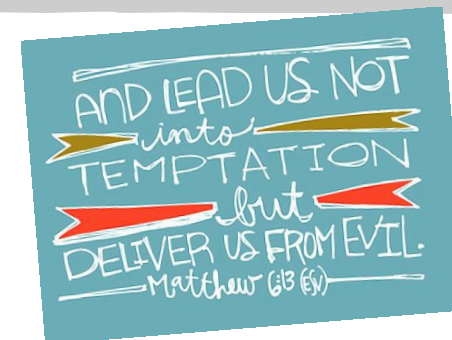 AND LEAD US NOT
into
TEMPTATION
but
DELIVER US FROM EVIL.
Matthew 6:13 (ESV)